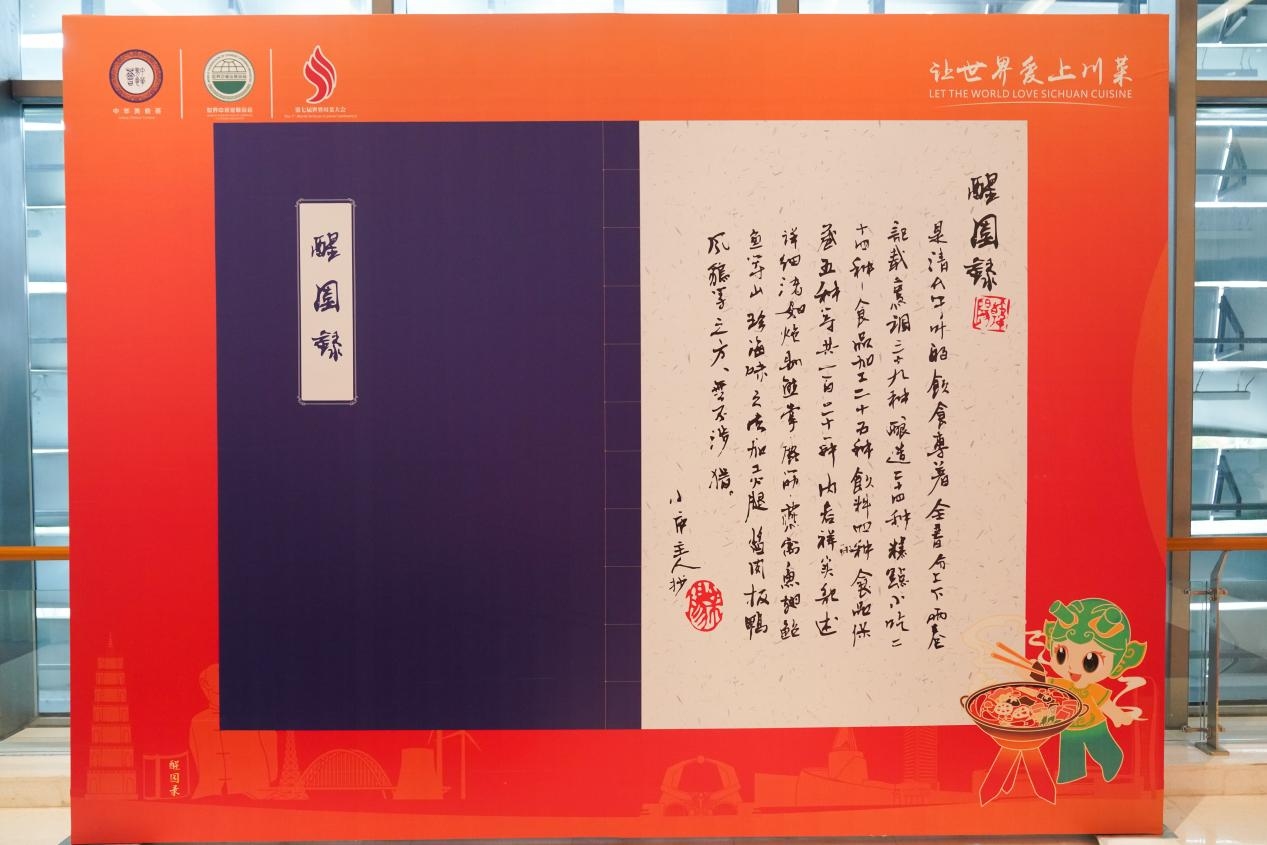 中华美食荟
世界中餐业联合会
第七届世界川菜大会
让世界爱上川菜
LET THE WORLD LOVE SICHUAN CUISINE
醒园錄
醒园錄
是清人 的飲食專著全書分上下两卷
記載烹调三十九种酿造二十四种糕點小吃二
十四种食品加工二十五种飲料四种食品保
藏五种等共一百二十一种内容祥实記述
详细诸如炮制熊掌鹿筋燕窝魚翅鮑
魚等山珍海味之法加工火腿醬肉板鴨
风鸡等之方、無不涉猎。
小 主人抄
醒园录